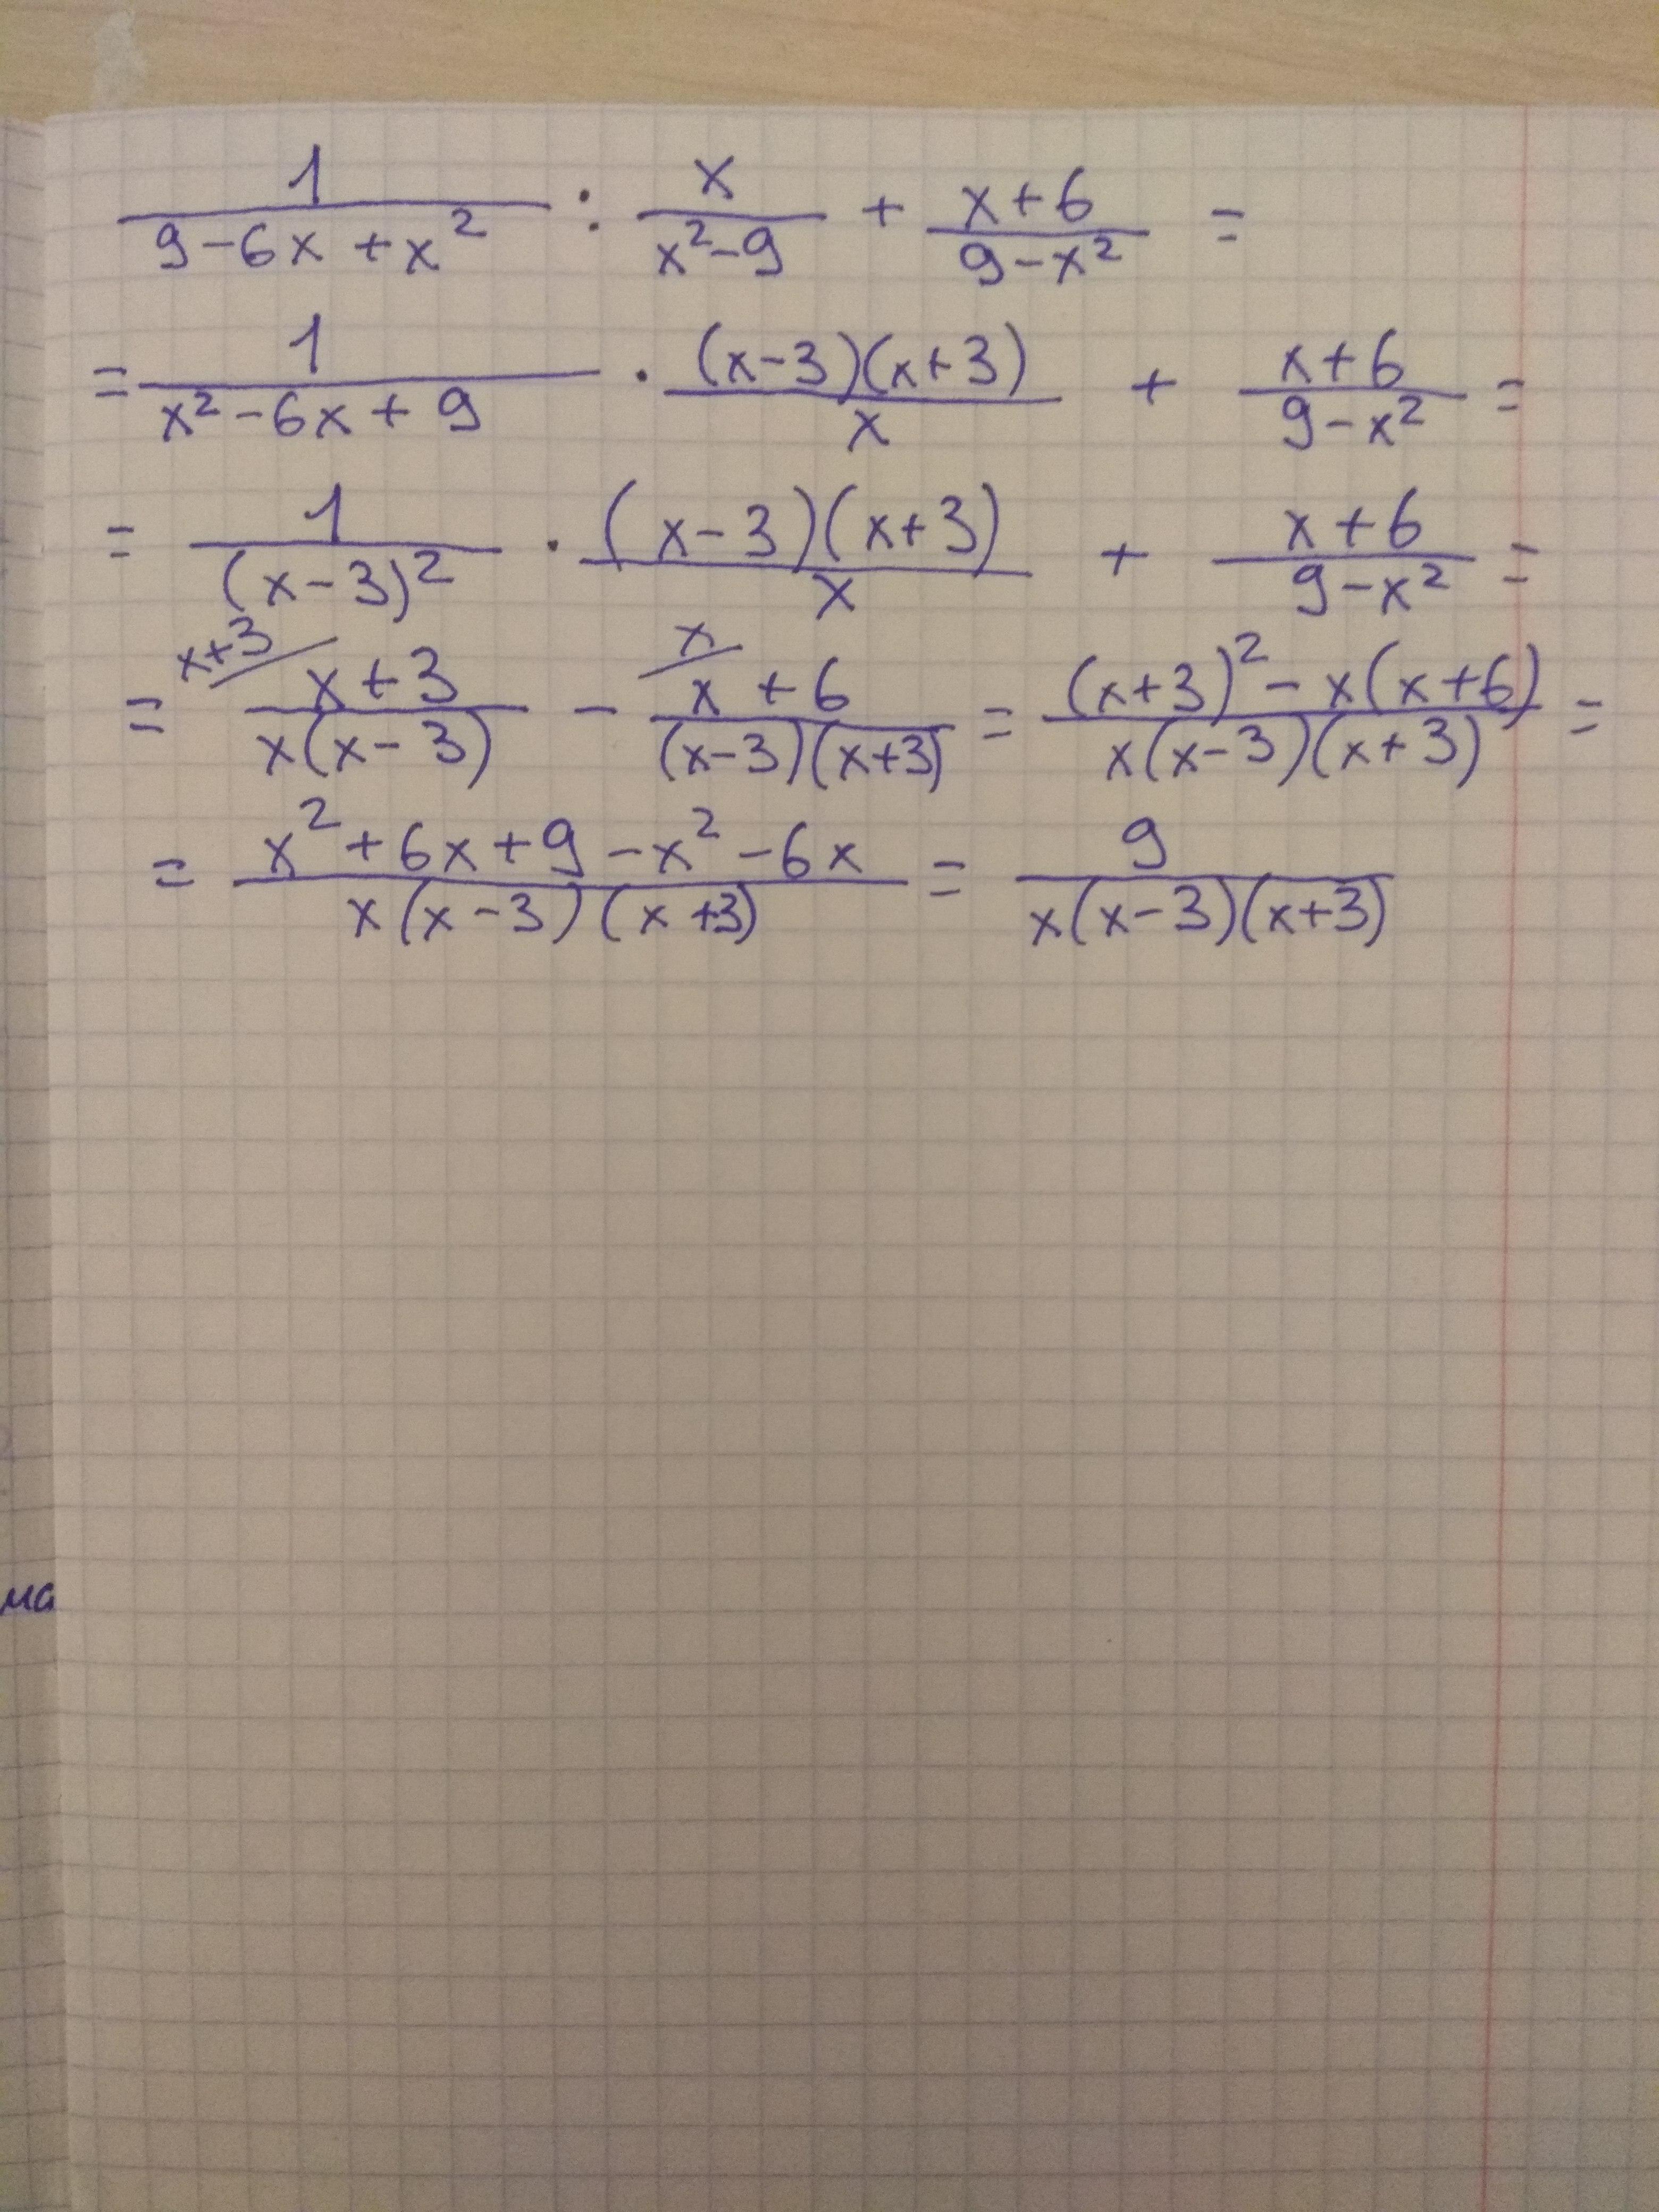 1/(9-6x+x²) : x/(x²-9) + (x+6)/(9-x²) =
= 1/(x²-6x+9) · (x-3)(x+3)/x + (x+6)/(9-x²) =
= 1/(x-3)² · (x-3)(x+3)/x + (x+6)/(9-x²) =
= x+3/ (x+3)/(x(x-3)) - x/ (x+6)/((x-3)(x+3)) = ((x+3)²-x(x+6))/(x(x-3)(x+3)) =
= (x²+6x+9-x²-6x)/(x(x-3)(x+3)) = 9/(x(x-3)(x+3))
ма